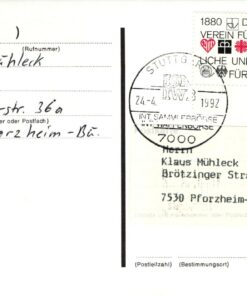 )
(Rufnummer)
ühleck
str. 36a
er oder Postfach)
rzheim-Bü.
1880
VEREIN FÜ
LICHE UN
FÜR
STUTTGA
24.-4. 1992
INT. SAMMLERBÖRSE
7000
Herrn
Klaus Mühleck
Brötzinger Stra
7530 Pforzheim-
(Postleitzahl) (Bestimmungsort)